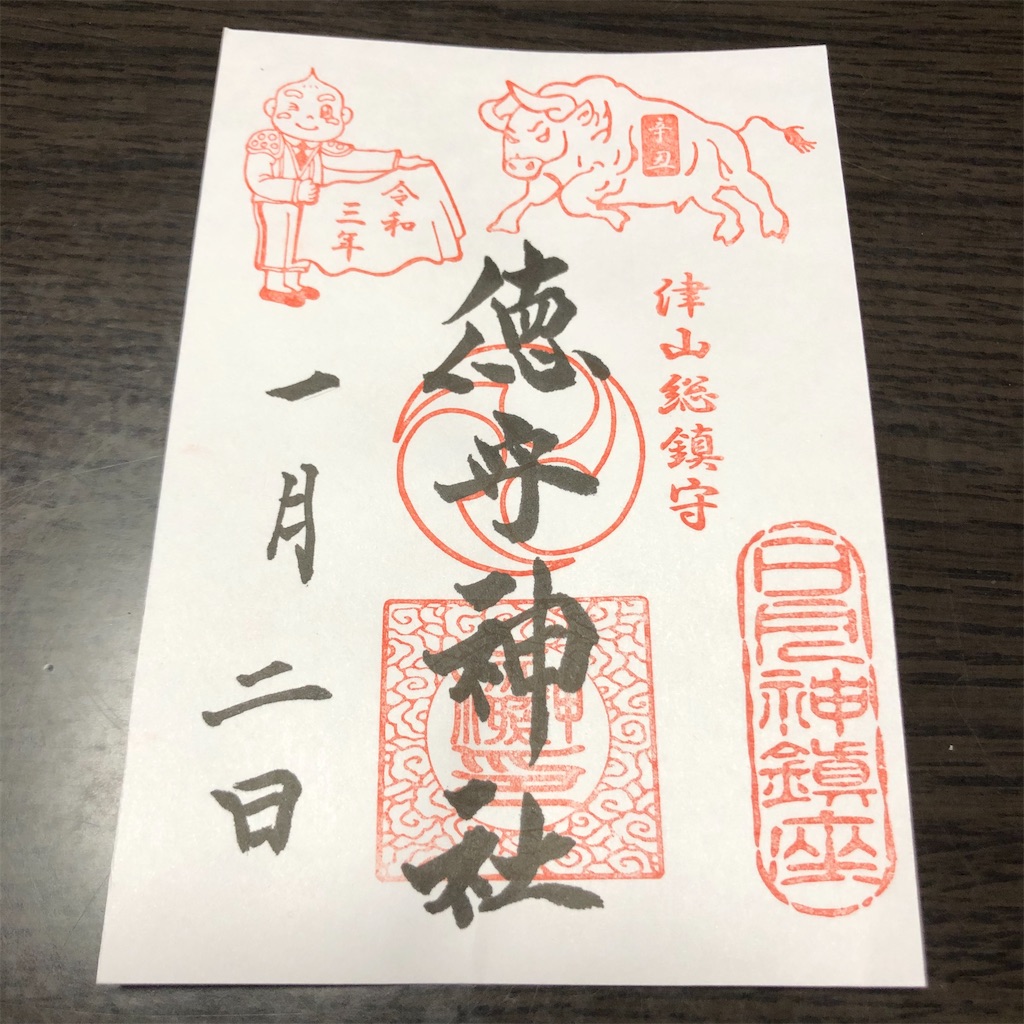 辛丑
令和
三年
津山総鎮守
神鎮座
徳守神社
一月二日